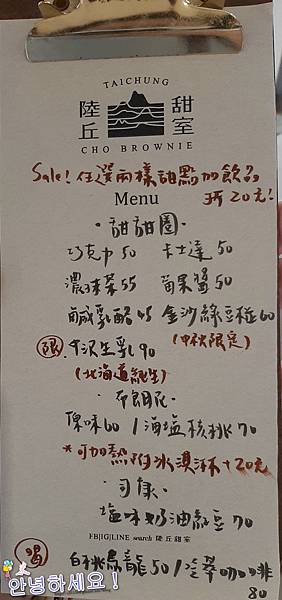 TAICHUNG
陸丘 甜室
CHO BROWNIE
Sale! 任選兩樣甜點加飲品
折20元!
Menu
·甜甜圈·
巧克力 50 卡士達 50
濃抹茶 55 莓果醬 50
鹹乳酪 45 金沙綠豆椪 60
(中秋限定)
限 千沢生乳 90
(北海道純生)
·布朗尼·
原味 60 / 海塩核桃 70
*可加熱附冰淇淋+20元
·司康·
塩味奶油紅豆 70
FB|IG|LINE search 陸丘甜室
喝 白桃烏龍 50 / 咖啡
80
안녕하세요!